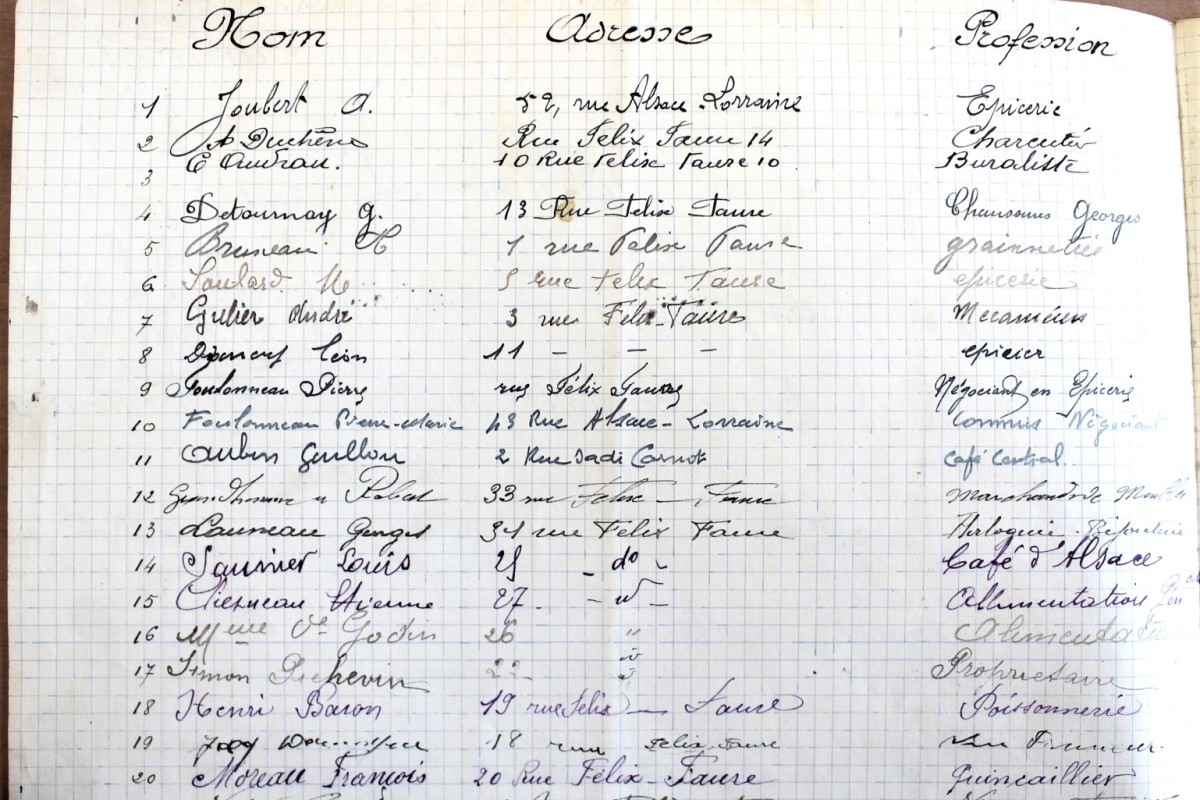 Nom Adresse Profession
1 Joubert A. 52, rue Alsace-Lorraine Epicerie
2 A Duchêne Rue Felix Faure 14 Charcutier
3 E Audran. 10 Rue Felix Faure 10. Buraliste
4 Detournay G. 13 Rue Felix Faure Chaussures Georges
5 Bruneau 1 rue Felix Faure grainnetier
6 Soulard M 5 rue Felix Faure epicerie
7 André 3 rue Felix-Faure Mecanicien
8 Léon 11 — — — epicier
9 Foulonneau Pierre rue Félix Faure Négociant en Epicerie
10 Foulonneau Pierre-Marie 43 Rue Alsace-Lorraine Commis Négociant
11 Aubin Guillou 2 Rue Sadi Carnot Café Central.
12 33 rue Felix — Faure Marchand de Meubles
13 Launeau Georges 31 rue Felix Faure Horlogerie. Bijouterie
14 Saunier Louis 25 — do - Café d'Alsace
15 Etienne 27. — do — Allimentation
16 Mme Vve Godin 26 " Alimentation
17 Simon Pichevin 22 " Propriétaire
18 Henri Baron 19 rue Felix — Faure Poissonnerie
19 18 rue Felix Faure
20 Moreau François 20 Rue Félix-Faure Quincaillier